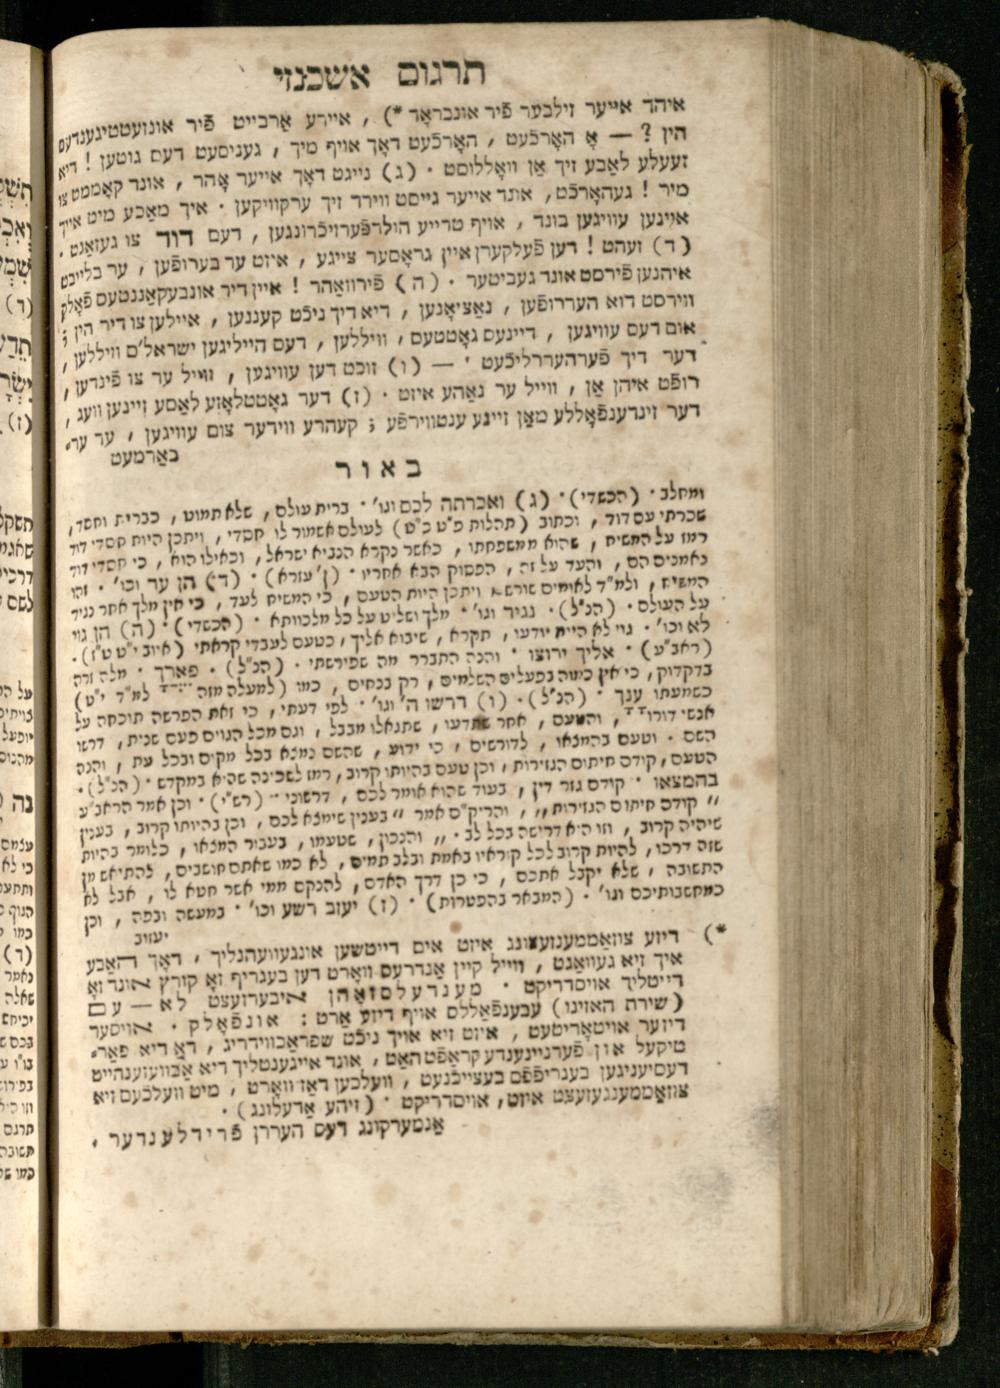 תרגום אשכנזי
איהר אייער זילבער פֿיר אונבראָד *) , אייערע אַרבייט פֿיר אונזעטטיגענדעס
הין ? — אָ האָרכֿעט , האָרכֿעט דאָך אויף מיך , געניסעט דעס גוטען ! דיא
זעעלע לאַבע זיך אָן וואָללוסט · (ג) נייגט דאָך אייער אָהר , אונד קאָממט צו
מיר ! געהאָרכֿט , אונד אייער גייסט ווירד זיך ערקוויקען · איך מאַכע מיט אייך
איינען עוויגען בונד , אויף טרייע הולדפֿערזיכֿרונגען , דעם דוד צו געזאַגט ·
(ד) זעהט ! דען פֿעלקערן איין גראָסער צייגע , איזט ער בערופֿען , ער בלייבט
איהנען פֿירסט אונד געביטער · (ה) פֿירוואַהר ! איין דיר אונבעקאַננטעס פֿאָלק
ווירסט דוא העררופֿען , נאַציאָנען , דיא דיך ניכֿט קעננען , איילען צו דיר הין ;
אום דעס עוויגען , דיינעס גאָטטעס , וויללען , דעס הייליגען ישראל'ס וויללען ,
דער דיך פֿערהעררליכֿעט · — (ו) זוכט דען עוויגען , ווייל ער צו פֿינדען ,
רופֿט איהן אָן , ווייל ער נאַהע איזט · (ז) דער גאָטטלאָזע לאַסע זיינען וועג ,
דער זינדענפֿאָללע מאַן זיינע ענטווירפֿע ; קעהרע ווידער צום עוויגען , ער ער⸗
באַרמעט
באור
ומחלב · (הכשדי) · (ג) ואכרתה לכם וגו' · ברית עולם , שלא תמוט , כברית וחסד ,
שכרתי עם דוד , וכתוב (תהלות פ"ט כ"ט) לעולם אשמור לו חסדי , ויתכן היות חסדי דוד
רמז על המשיח , שהוא ממשפחתו , כאשר נקרא הנביא ישראל , וכאילו הוא , כי חסדי דוד
נאמנים הם , והעד על זה , הפסוק הבא אחריו · (ן' עזרא) · (ד) הן עד וכו' · זהו
המשיח , ולמ"ד לאומים שורש , ויתכן היות הטעם , כי המשיח לעד , כי אין מלך אחר נגיד
על העולם · (הנ"ל) · נגיד וגו' · מלך ושליט על כל מלכוותא · (הכשדי) · (ה) הן גוי
לא וכו' · גוי לא היית יודעו , תקרא , שיבוא אליך , כטעם לעבדי קראתי (איוב י"ט ט"ז) ·
(ראב"ע) · אליך ירוצו · והנה התברר מה שפירשתי · (הנ"ל) · פארך · מלה זרה
בדקדוק , כי אין כמוה בפעלים השלמים , רק בנחים , כמו (למעלה מזה למ"ד י"ט)
כשמעתו ענך · (הנ"ל) · (ו) דרשו ה' וגו' · לפי דעתי , כי זאת הפרשה תוכחה על
אנשי דורו , והטעם , אחר שתדעו , שתגאלו מבבל , וגם מכל הגוים פעם שנית , דרשו
השם · וטעם בהמצאו , לדורשים , כי ידוע , שהשם נמצא בכל מקום ובכל עת , והנה
הטעם , קודם חיתום הגזירות , וכן טעם בהיותו קרוב , רמז לשכינה שהיא במקדש · (הנ"ל) ·
בהמצאו · קודם גזר דין , בעוד שהוא אומר לכם , דרשוני · (רש"י) · וכן אמר הראב"ע
" קודם חיתום הגזירות " , והריק"ם אמר " בענין שימצא לכם , וכן בהיותו קרוב , בענין
שיהיה קרוב , וזו היא דרישה בכל לב · " והנכון , שטעמו , בעבור המצאו , כלומר בהיות
שזה דרכו , להיות קרוב לכל קוראיו באמת ובלב תמים , לא כמו שאתם חושבים , להתיאש מן
התשובה , שלא יקבל אתכם , כי כן דרך האדם , להנקם ממי אשר חטא לו , אבל לא
כמחשבותיכם וגו' · (המבאר בהפטרות) · (ז) יעזב רשע וכו' · במעשה ובפה , וכן
יעזוב
*) דיזע צוזאַממענזעצונג איזט אים דייטשען אונגעוועהנליך , דאָך האַבע
איך זיא געוואַגט , ווייל קיין אַנדרעס וואָרט דען בעגריף זאָ קורץ אונד זאָ
דייטליך אויסדריקט · מענדעלסזאָהן איבערזעצט לא — עם
(שירת האזינו) עבענפֿאַללס אויף דיזע אַרט : אונפֿאָלק · אויסער
דיזער אויטאָריטעט , איזט זיא אויך ניכֿט שפּראַכווידריג , דאָ דיא פּאַר⸗
טיקעל און פֿערניינענדע קראַפֿט האַט , אונד אייגענטליך דיא אַבוועזענהייט
דעסיעניגען בעגריפֿפֿס בעצייכֿנעט , וועלכען דאַז וואָרט , מיט וועלכֿעם זיא
צוזאַממענגעזעצט איזט , אויסדריקט · (זיהע אַדעלונג) ·
אַנמערקונג דעס העררן פֿרידלענדער ·